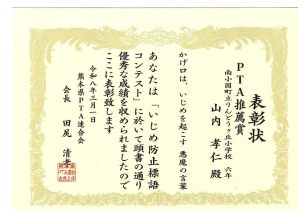 表彰状
PTA推薦賞
南小国町立りんどうヶ丘小学校 六年
山内 孝仁 殿
かげ口は、いじめを起こす 悪魔の言葉
あなたは「いじめ防止標語
コンテスト」に於いて頭書の通り
優秀な成績を収められましたので
ここに表彰致します
令和八年三月一日
熊本県PTA連合会
会長 田尻 清孝